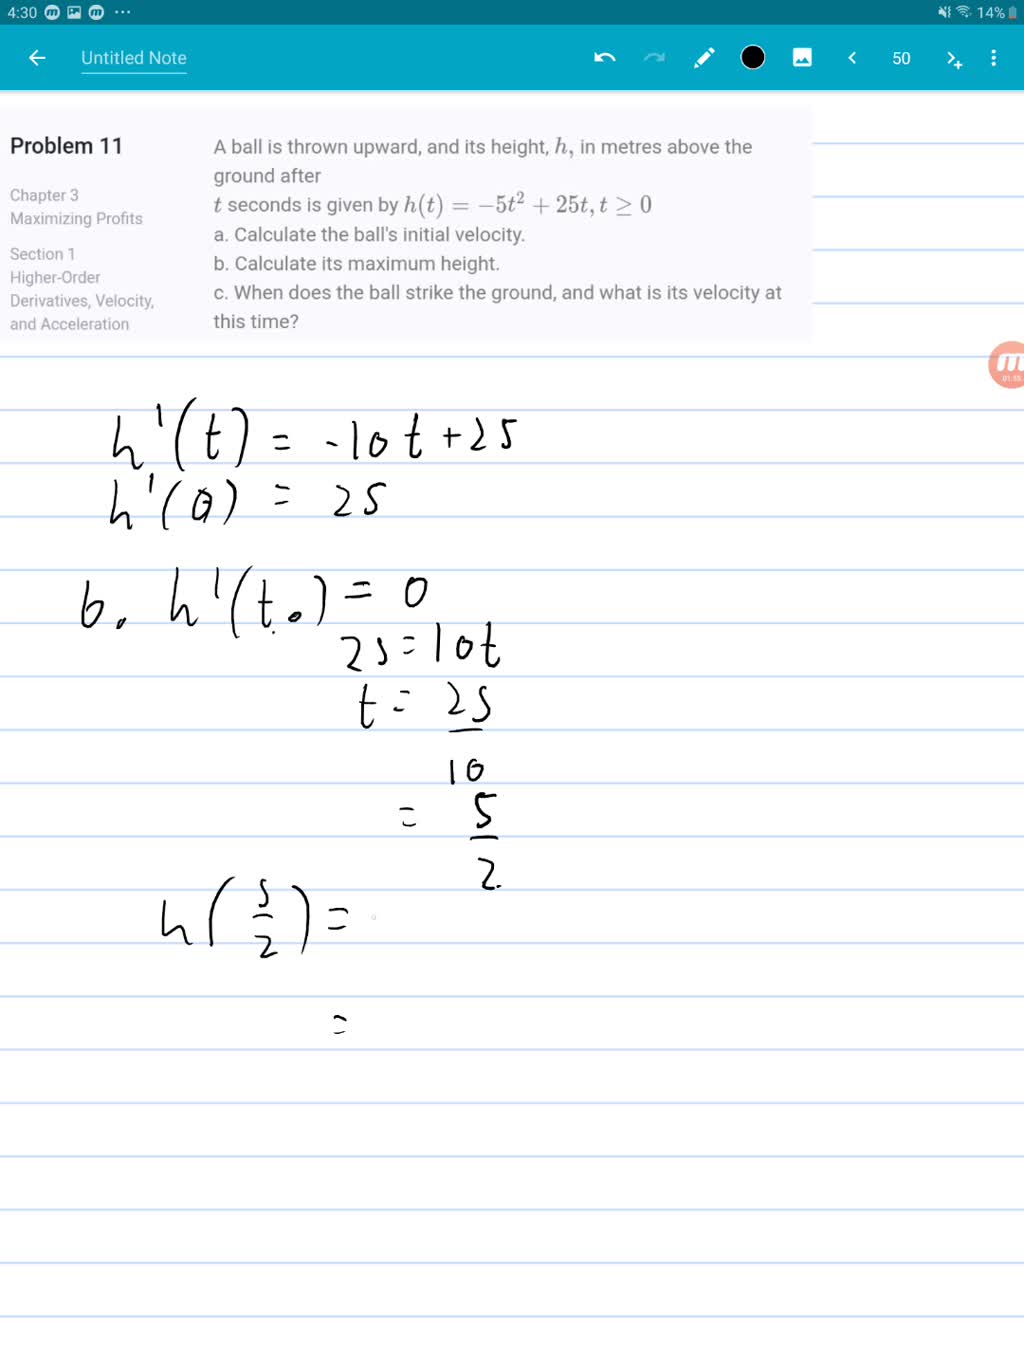 4:30 14%
Untitled Note 50
Problem 11
Chapter 3
Maximizing Profits
Section 1
Higher-Order
Derivatives, Velocity,
and Acceleration
A ball is thrown upward, and its height, h, in metres above the
ground after
t seconds is given by h(t) = −5t² + 25t, t ≥ 0
a. Calculate the ball's initial velocity.
b. Calculate its maximum height.
c. When does the ball strike the ground, and what is its velocity at
this time?
01:55
h'(t) = -10t + 25
h'(0) = 25
b. h'(t₀) = 0
25 = 10t
t = 25/10
= 5/2
h(5/2) =
=